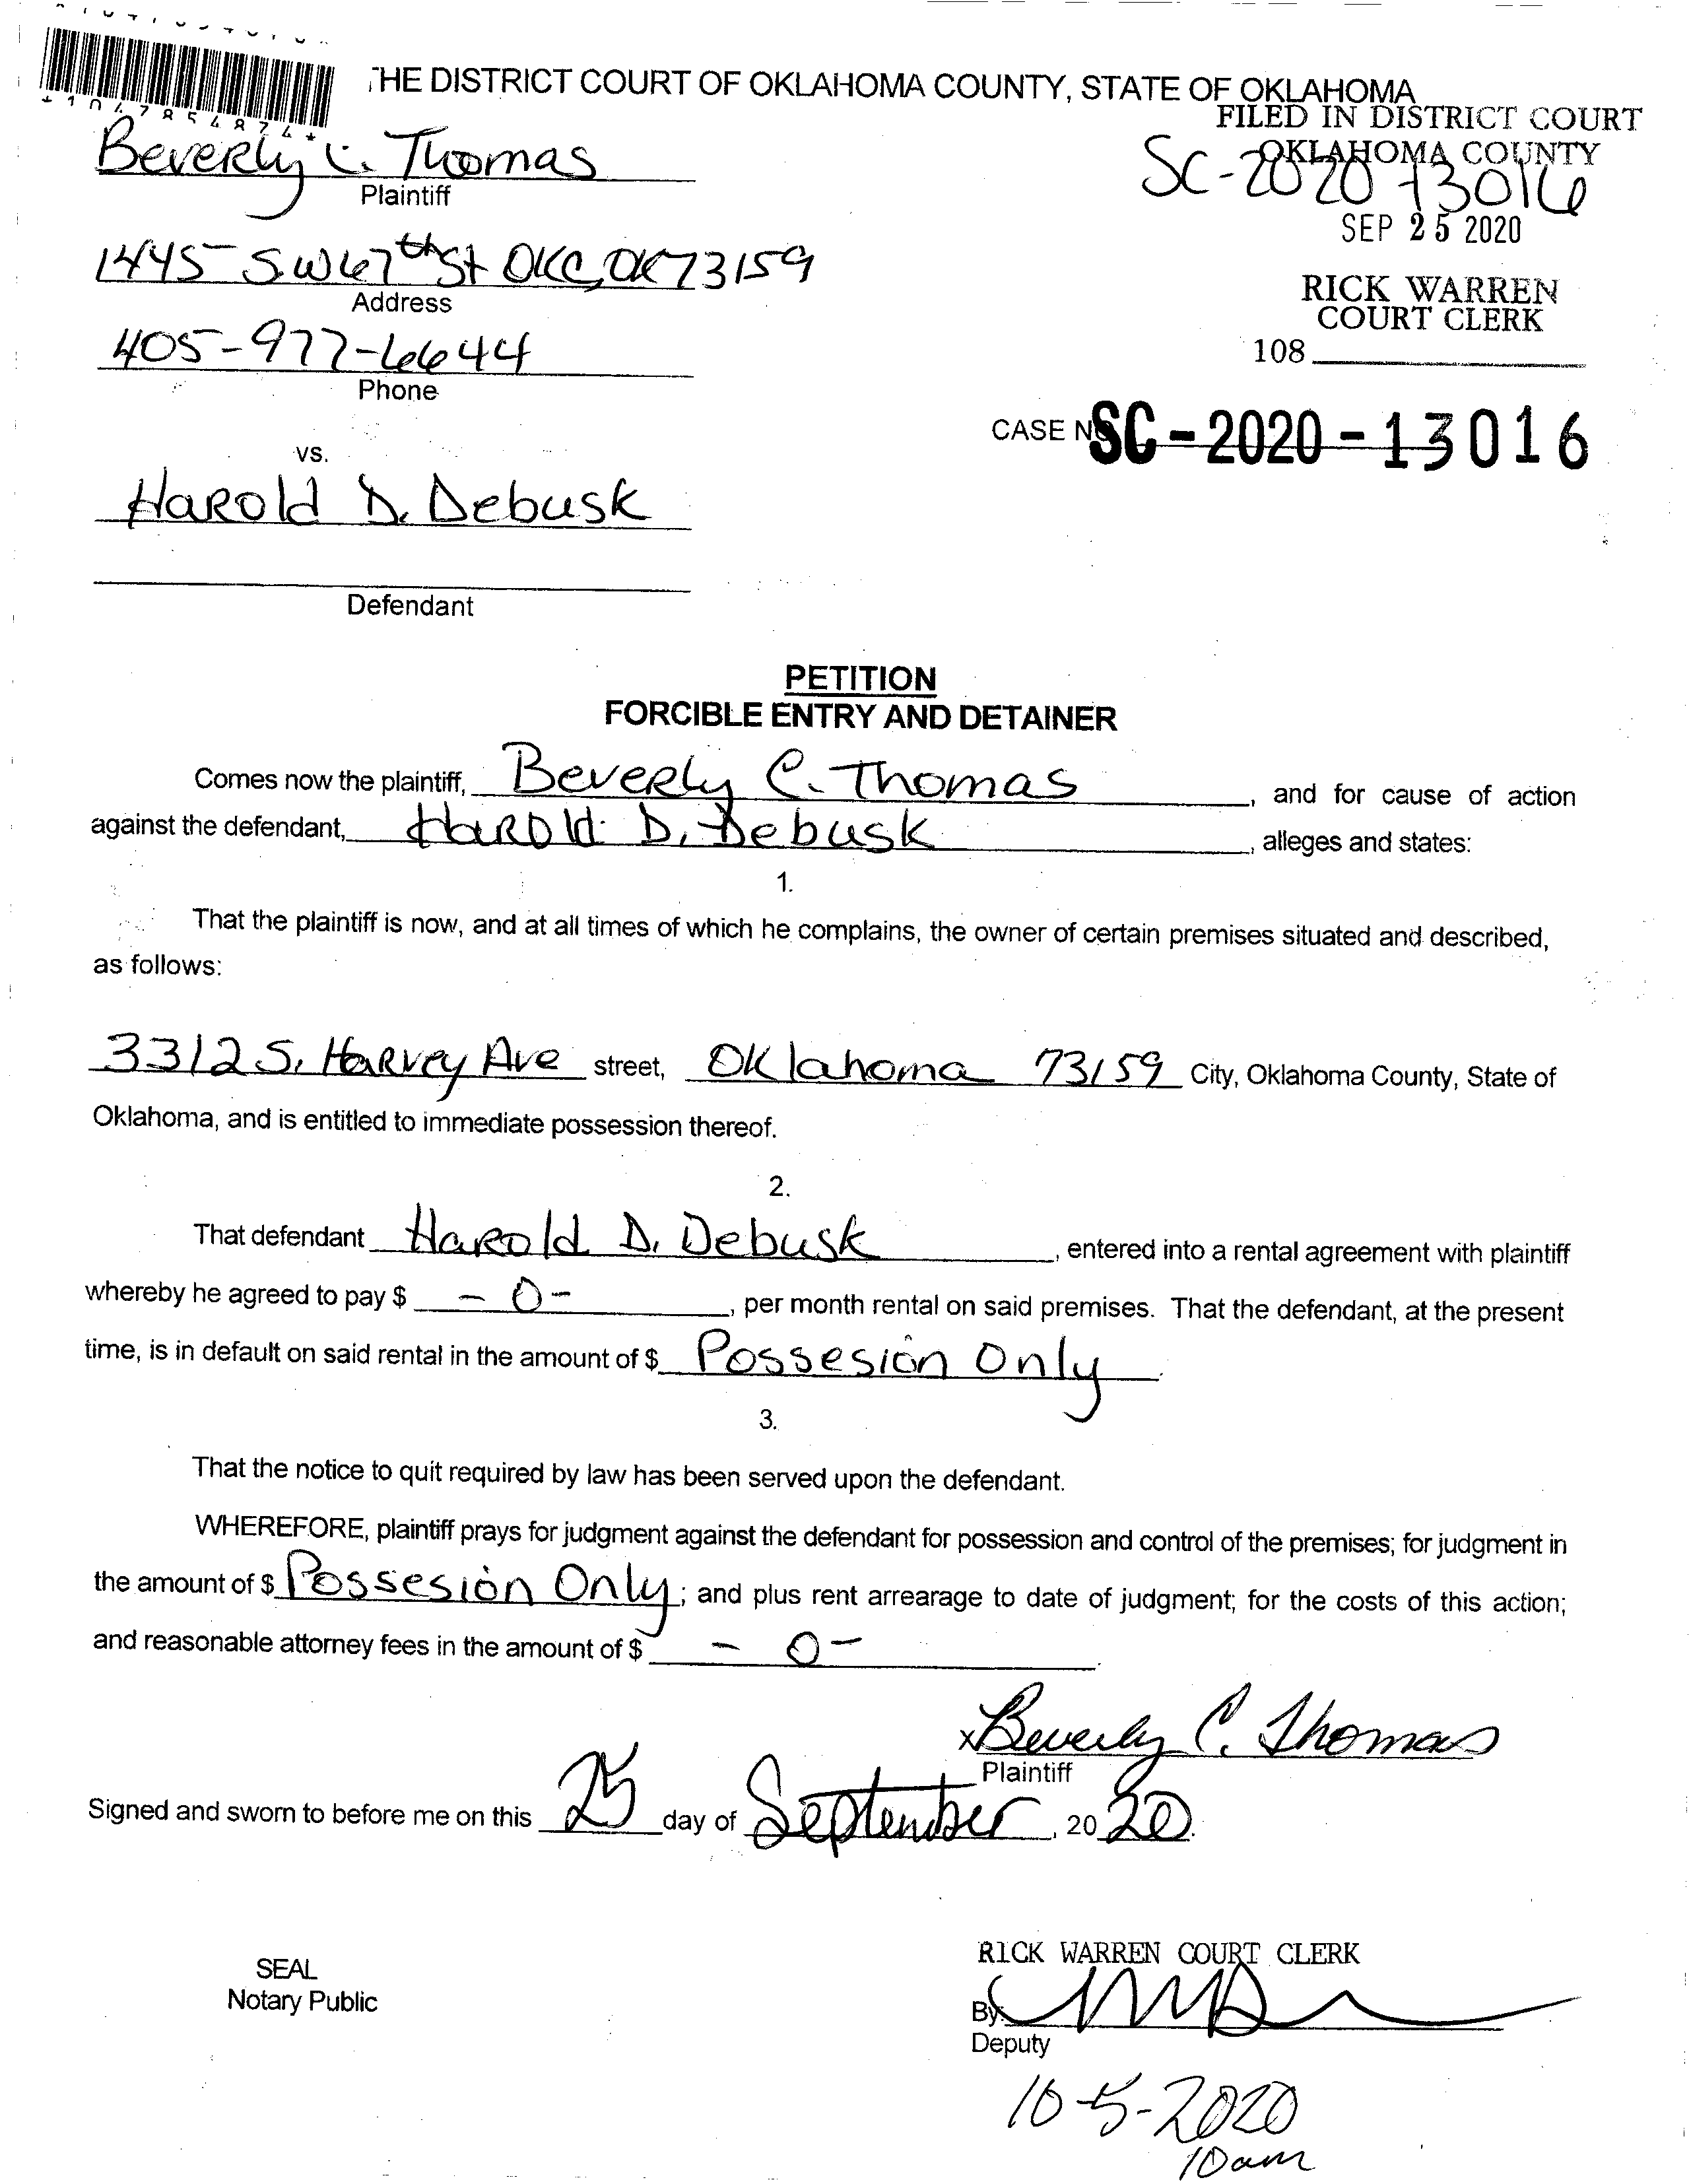 THE DISTRICT COURT OF OKLAHOMA COUNTY, STATE OF OKLAHOMA
FILED IN DISTRICT COURT
OKLAHOMA COUNTY
*1047854874*
Beverly C. Thomas
SC-2020-13016
Plaintiff
SEP 25 2020
1445 SW 67th St OKC, OK 73159
Address
RICK WARREN
COURT CLERK
405-977-6644
108
Phone
CASE NO. SC-2020-13016
vs.
Harold D. Debusk
Defendant
PETITION
FORCIBLE ENTRY AND DETAINER
Comes now the plaintiff, Beverly C. Thomas, and for cause of action
against the defendant, Harold D. Debusk, alleges and states:
1.
That the plaintiff is now, and at all times of which he complains, the owner of certain premises situated and described,
as follows:
3312 S. Harvey Ave street, Oklahoma 73159 City, Oklahoma County, State of
Oklahoma, and is entitled to immediate possession thereof.
2.
That defendant Harold D. Debusk, entered into a rental agreement with plaintiff
whereby he agreed to pay $ -0-, per month rental on said premises. That the defendant, at the present
time, is in default on said rental in the amount of $ Possesion Only.
3.
That the notice to quit required by law has been served upon the defendant.
WHEREFORE, plaintiff prays for judgment against the defendant for possession and control of the premises; for judgment in
the amount of $ Possesion Only; and plus rent arrearage to date of judgment; for the costs of this action;
and reasonable attorney fees in the amount of $ -0-.
x Beverly C. Thomas
Plaintiff
Signed and sworn to before me on this 25 day of September, 2020.
RICK WARREN COURT CLERK
SEAL
Notary Public
By:
Deputy
10-5-2020
10am